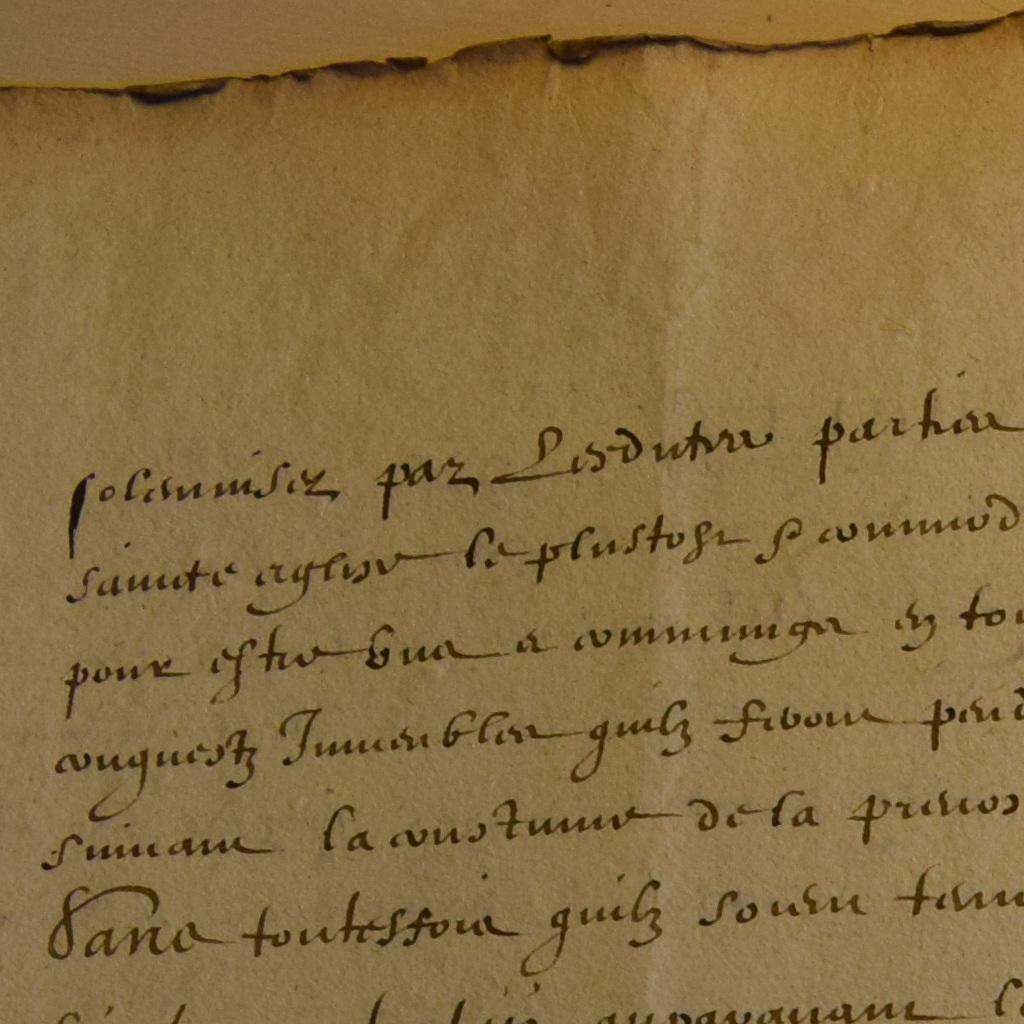 solemnisez par Lesdites parties
saincte eglise le plustost q̃ commod
pour estre uns et communs en tou
conquestz Immeubles quilz feront pend
suivant la coustume de la prevos
Sans touttesfois quilz soient tenu
auparavant